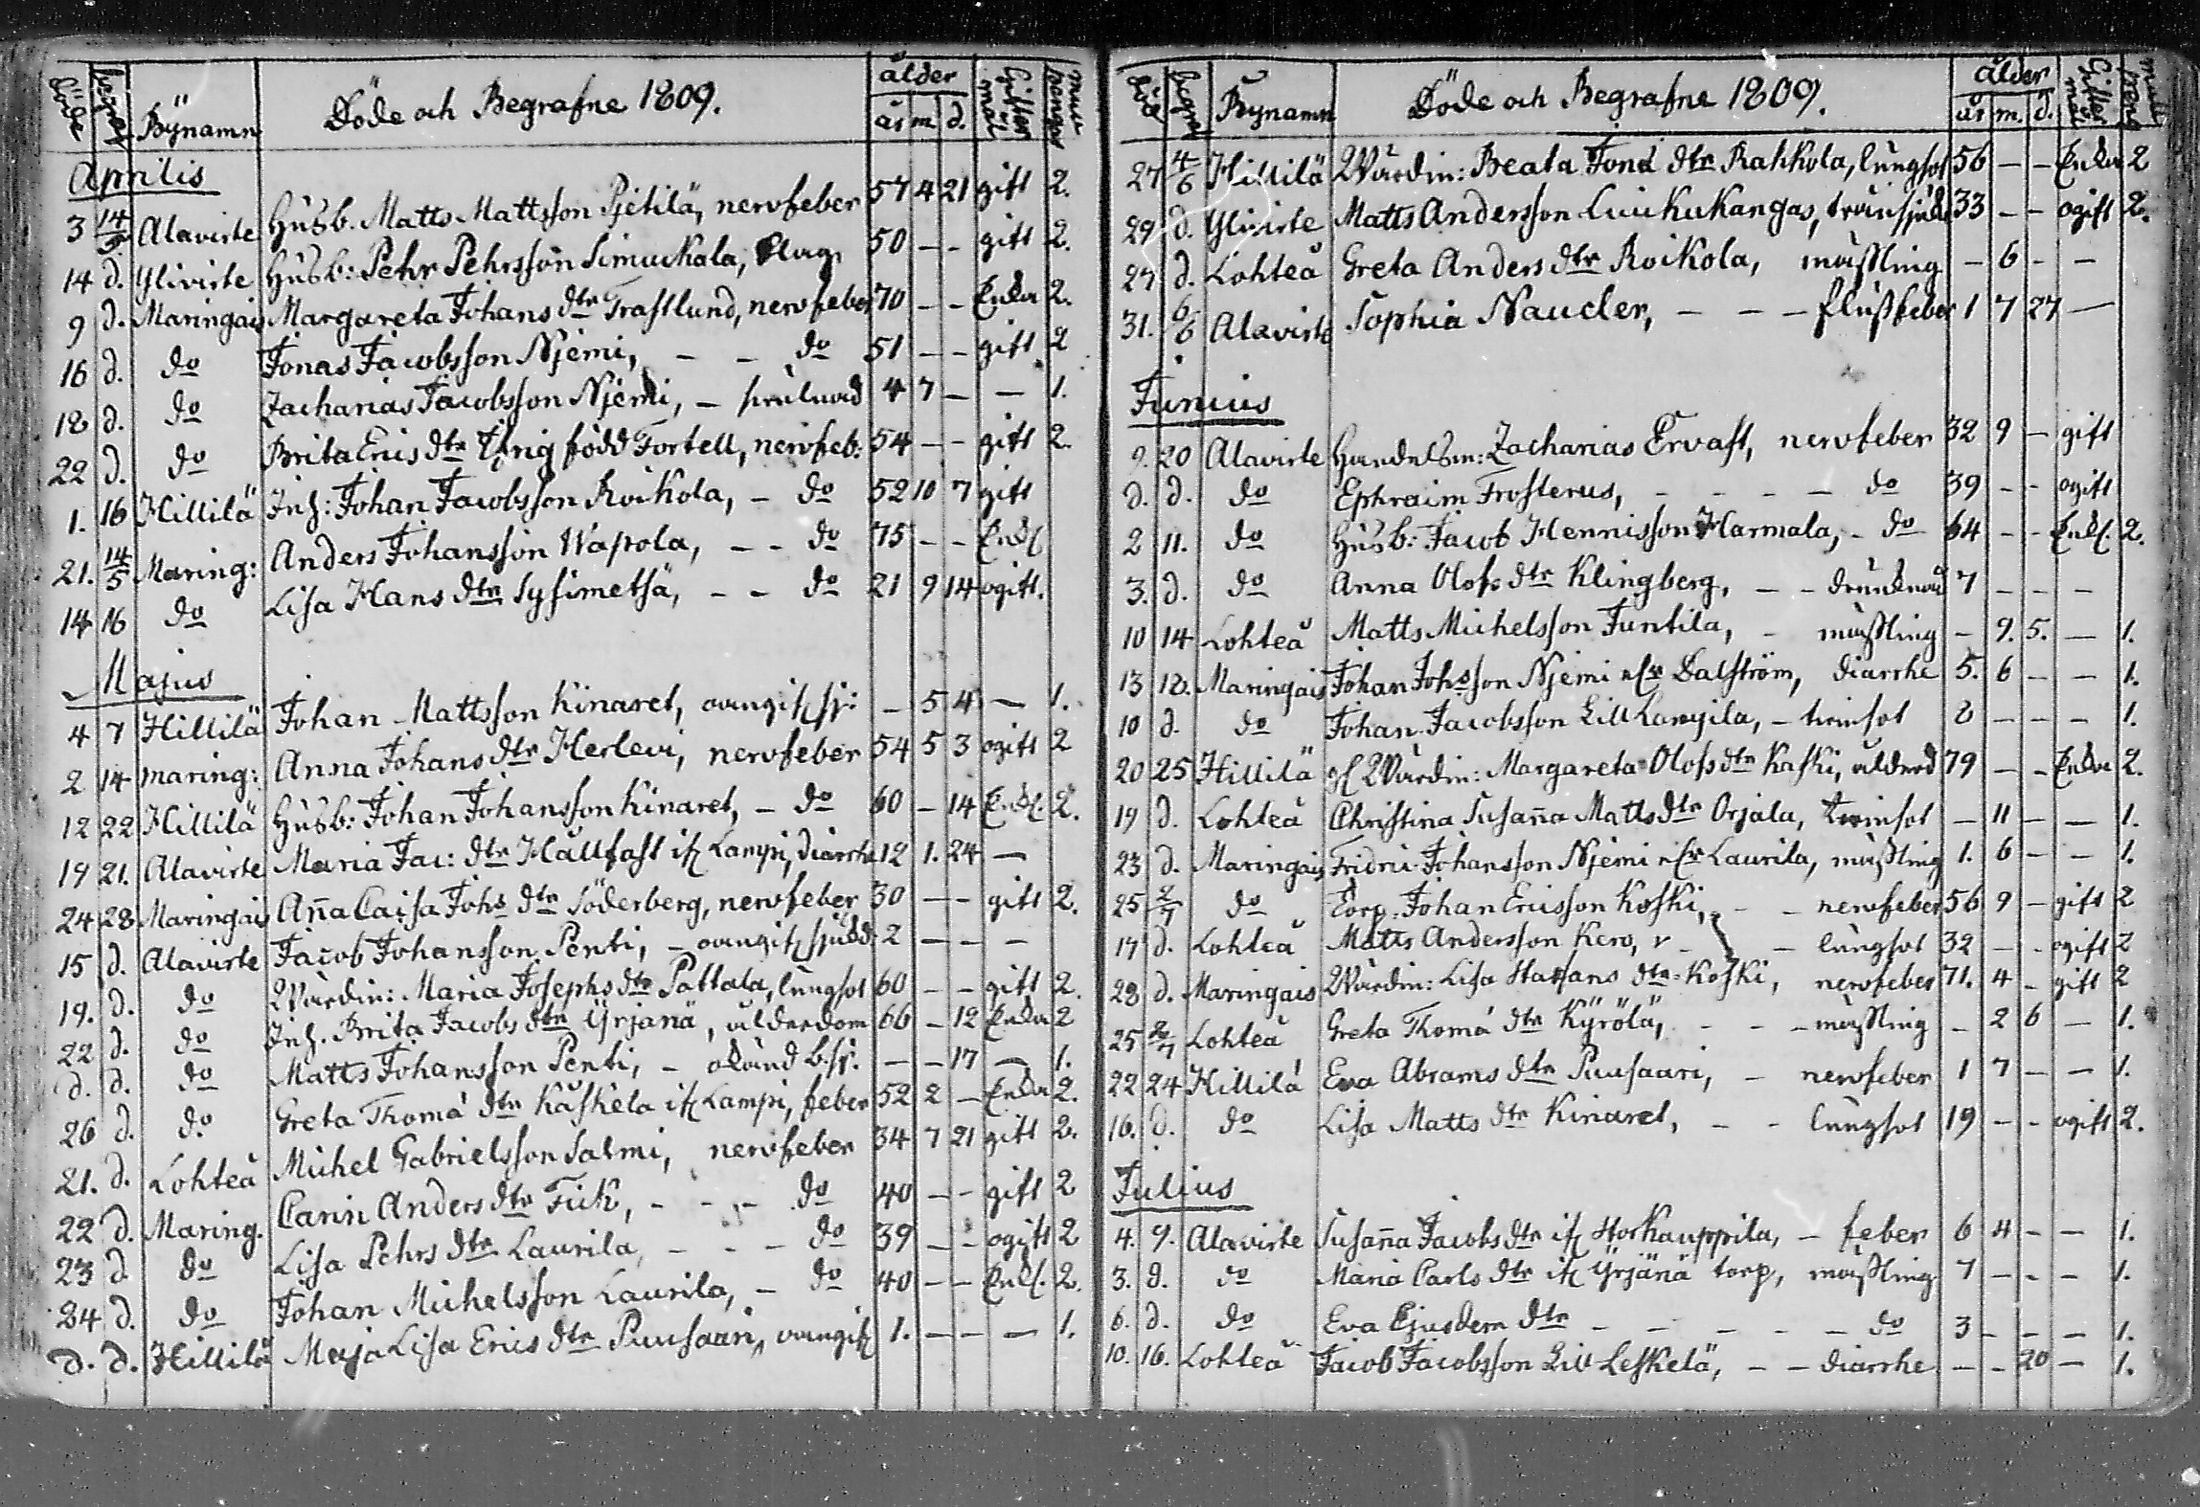 döde begraf Bÿnamn Döde och Begrafne 1809. ålder år m. d. Giftermål
Aprilis
3 14/5 Alavirte Husb. Matts Mattsson Pjetilä, nervfeber 57 4 21 gift 2.
14 d. Ylivirte Husb: Pehr Pehrsson Simukala, 50 – – gift 2.
9 d. Maringais Margareta Johans dtr Trastlund, nervfeber 70 – – Enka 2.
16 d. do Jonas Jacobsson Njemi, – – do 51 – – gift 2
18 d. do Zacharias Jacobsson Njemi, – 4 7 – – 1.
22 d. do Brita Erics dtr Uhrig född Fortell, nervfeb: 54 – – gift 2.
1. 16 Hillilä Inh: Johan Jacobsson Roikola, – do 52 10 7 gift
21. 14/5 Maring: Anders Johansson Wapola, – – do 75 – – Enkl
14 16 do Lisa Hans dtr Sysimetsä, – – do 21 9 14 ogift.
Majus
4 7 Hillilä Johan Mattsson Kinaret, – 5 4 – 1.
2 14 Maring: Anna Johans dtr Herlevi, nervfeber 54 5 3 ogift 2
12 22 Hillilä Husb: Johan Johansson Kinaret, – do 60 – 14 Enkl. 2.
19 21. Alavirte Maria Jac: dtr Hållfast Lampi, diarrhe 12 1. 24 –
24 28 Maringais Aña Caisa Johs dtr Söderberg, nervfeber 30 – – gift 2.
15 d. Alavirte Jacob Johansson Penti, – 2 – – –
19. d. do Wärdin: Maria Josephs dtr Pattala, lungsot 60 – – gift 2.
22 d. do Inh. Brita Jacobs dtr Yrjänä, ålderdom 66 – 12 Enka 2
d. d. do Matts Johansson Penti, – okänd b.sj. – – 17 – 1.
26 d. do Greta Thomæ dtr Kaskela Lampi, feber 52 2 – Enka 2.
21. d. Lohteå Michel Gabrielsson Salmi, nervfeber 34 7 21 gift 2.
22 d. Maring. Carin Anders dtr Fick, – – – do 40 – – gift 2
23 d. do Lisa Pehrs dtr Laurila, – – – do 39 – – ogift 2
24 d. do Johan Michelsson Laurila, – do 40 – – Enkl. 2.
d. d. Hillilä Maja Lisa Erics dtr Puusaari, 1. – – – 1.
död begraf Bynamn Döde och Begrafne 1809. ålder år m. d. Giftermål
27 4/6 Hillilä Wärdin: Beata Jonæ dtr Rahkola, lungsot 56 – – Enka 2
29 d. Ylivirte Matts Andersson Luukukangas, 33 – – ogift 2.
27 d. Lohteå Greta Anders dtr Roikola, mässling – 6 – –
31. 6/6 Alavirte Sophia Naucler, – – – flussfeber 1 7 27 –
Junius
9. 20 Alavirte Handelsm: Zacharias Ervast, nervfeber 32 9 – gift
d. d. do Ephraim Frosterus, – – – – do 39 – – ogift
2 11. do Husb: Jacob Hennisson Harmala, – do 64 – – Enkl. 2.
3. d. do Anna Olofs dtr Klingberg, – – 7 – – –
10 14 Lohteå Matts Michelsson Juntila, – mässling – 9. 5. – 1.
13 18. Maringais Johan Johsson Njemi Dalström, diarrhe 5. 6 – – 1.
10 d. do Johan Jacobsson Lill Kanyila, – tvinsot 8 – – – 1.
20 25 Hillilä Wärdin: Margareta Olofs dtr Kaski, 79 – – Enka 2.
19 d. Lohteå Christina Susaña Matts dtr Orjala, tvinsot – 11 – – 1.
23 d. Maringais Fridric Johansson Njemi Laurila, mässling 1. 6 – – 1.
25 2/7 do Torp. Johan Ericsson Koski, – – nervfeber 56 9 – gift 2
17 d. Lohteå Matts Andersson Kero, – – lungsot 32 – – ogift 2
28 d. Maringais Wärdin: Lisa Staffans dtr Koski, nervfeber 71. 4 – gift 2
25 2/7 Lohteå Greta Thomæ dtr Kÿrölä, – – – mässling – 2 6 – 1.
22 24 Hillilä Eva Abrams dtr Puusaari, – nervfeber 1 7 – – 1.
16. d. do Lisa Matts dtr Kinaret, – – lungsot 19 – – ogift 2.
Julius
4. 9. Alavirte Susaña Jacobs dtr Storkauppila, – feber 6 4 – – 1.
3. d. do Maria Carls dtr Yrjänä torp, mässling 7 – – – 1.
6. d. do Eva Ejusdem dtr – – – – – do 3 – – – 1.
10. 16. Lohteå Jacob Jacobsson Lill Leskelä, – – diarrhe – – 20 – 1.